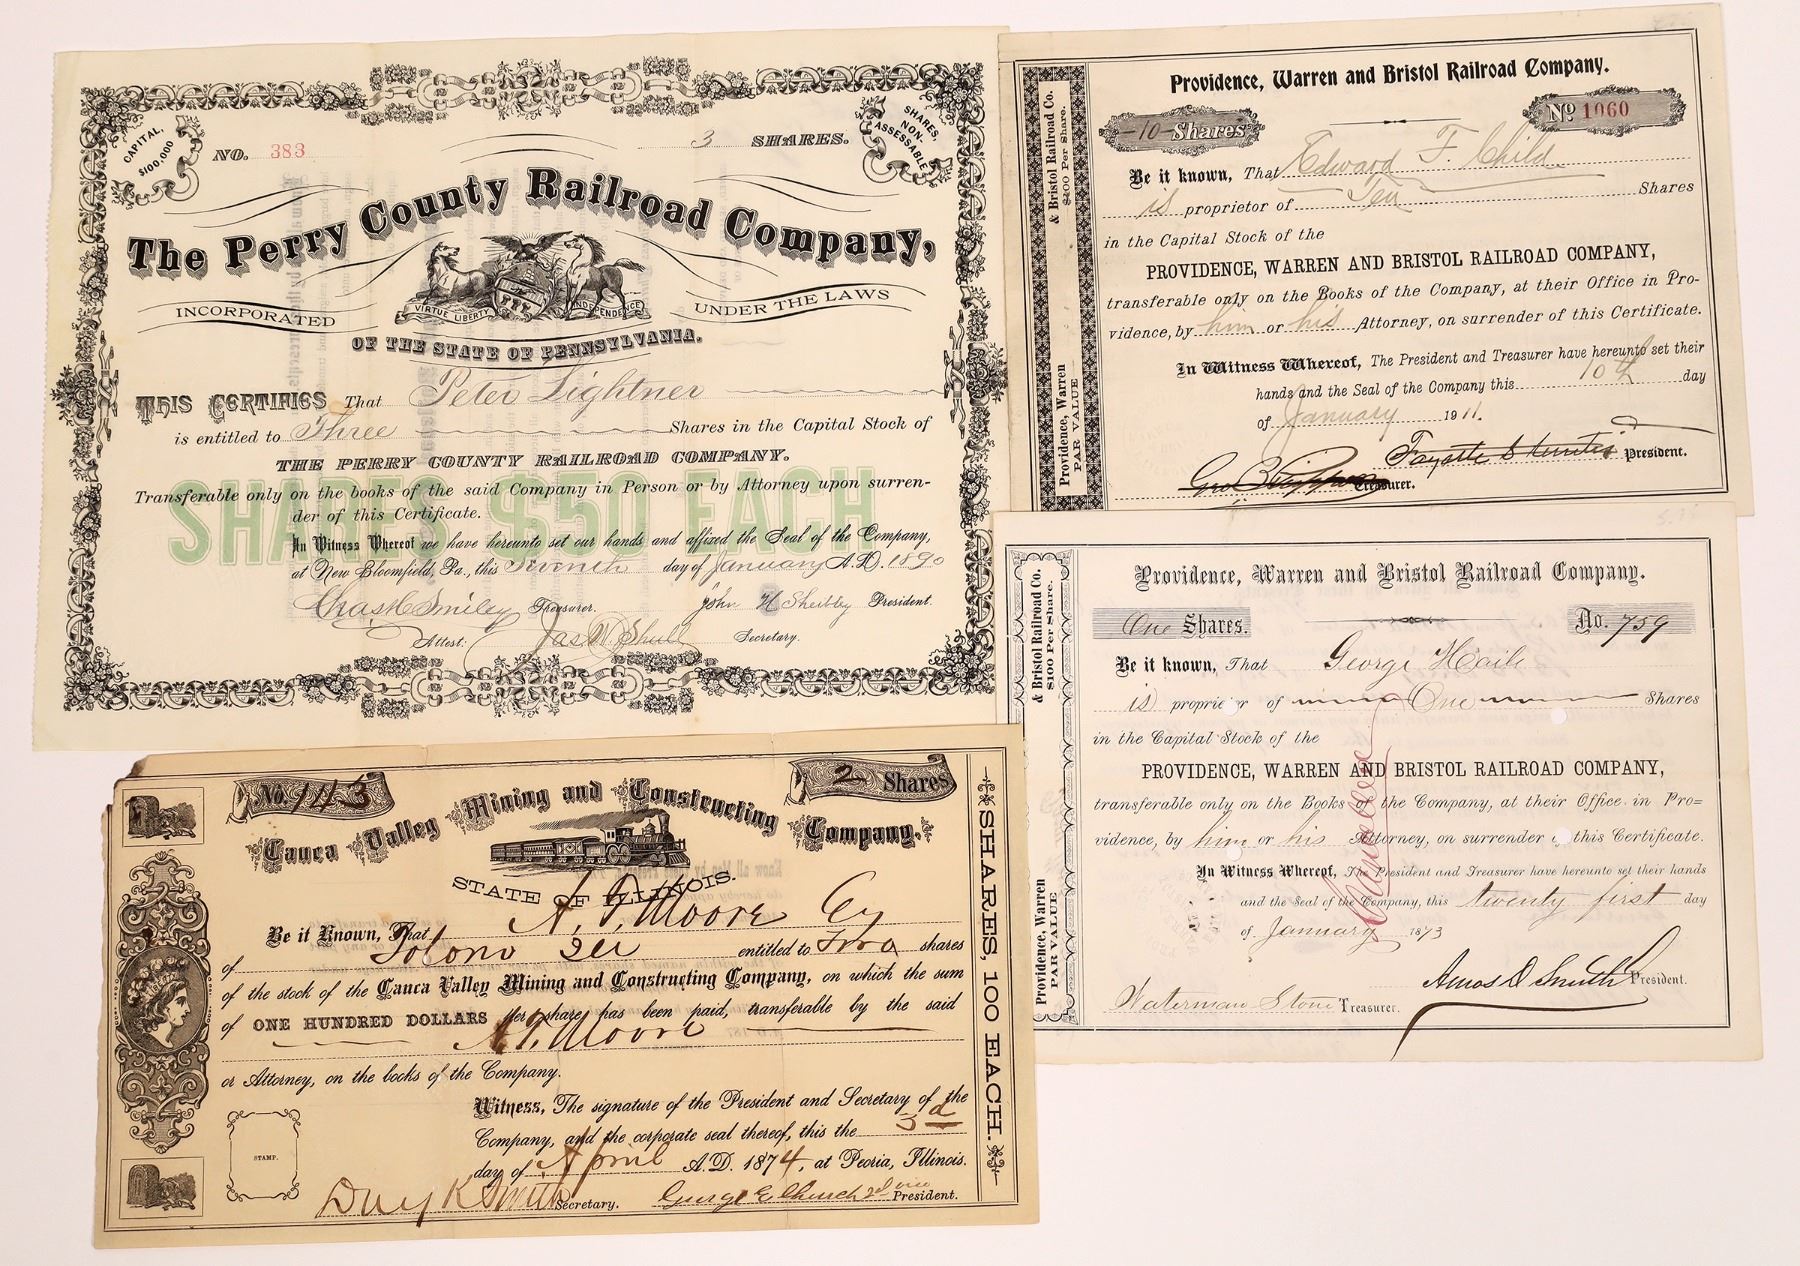 CAPITAL,
$100,000
NO. 383
3 SHARES.
SHARES
NON-
ASSESSABLE
The Perry County Railroad Company,
VIRTUE LIBERTY INDEPENDENCE
INCORPORATED UNDER THE LAWS
OF THE STATE OF PENNSYLVANIA.
THIS CERTIFIES That Peter Lightner
is entitled to Three Shares in the Capital Stock of
THE PERRY COUNTY RAILROAD COMPANY.
Transferable only on the books of the said Company in Person or by Attorney upon surren-
der of this Certificate.
SHARES $50 EACH
In Witness Whereof we have hereunto set our hands and affixed the Seal of the Company,
at New Bloomfield, Pa., this Seventh day of January A.D. 1890
Chas H Smiley Treasurer. John H Sheibley President.
Attest: Jas W. Shull Secretary.
Providence, Warren and Bristol Railroad Company.
10 Shares No 1060
Be it known, That Edward F. Child
is proprietor of Ten Shares
in the Capital Stock of the
PROVIDENCE, WARREN AND BRISTOL RAILROAD COMPANY,
transferable only on the Books of the Company, at their Office in Pro-
vidence, by him or his Attorney, on surrender of this Certificate.
In Witness Whereof, The President and Treasurer have hereunto set their
hands and the Seal of the Company this 10th day
of January 1911.
President.
Treasurer.
Providence, Warren & Bristol Railroad Co.
PAR VALUE $100 Per Share.
Providence, Warren and Bristol Railroad Company.
One Shares. No. 759
Be it known, That George Haile
is proprietor of One Shares
in the Capital Stock of the
PROVIDENCE, WARREN AND BRISTOL RAILROAD COMPANY,
transferable only on the Books of the Company, at their Office in Pro=
vidence, by him or his Attorney, on surrender of this Certificate.
In Witness Whereof, The President and Treasurer have hereunto set their hands
and the Seal of the Company, this twenty first day
of January 1873
Amos D. Smith President.
Waterman Stone Treasurer.
Cancelled
Providence, Warren & Bristol Railroad Co.
PAR VALUE $100 Per Share.
No. 143
2 Shares
Cauca Valley Mining and Constructing Company.
STATE OF ILLINOIS.
Be it Known, That A. T. Moore Cy
of Tolono Ill entitled to Two shares
of the stock of the Cauca Valley Mining and Constructing Company, on which the sum
of ONE HUNDRED DOLLARS per share has been paid, transferable by the said
A. T. Moore
or Attorney, on the books of the Company.
Witness, The signature of the President and Secretary of the
Company, and the corporate seal thereof, this the 3d
day of April A.D. 1874, at Peoria, Illinois.
Smith Secretary. George E Church 2d vice President.
STAMP.
SHARES, 100 EACH.